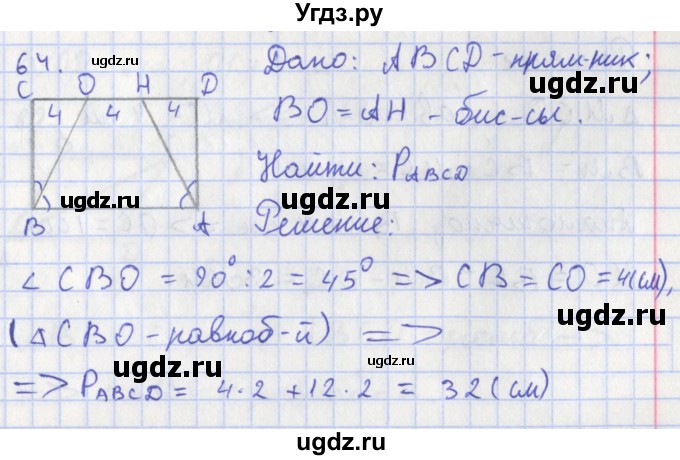 Угдз.ру
64.
Дано: ABCD - прям-ник;
C O H D
4 4 4
BO = AH - бис-сы.
Найти: P_ABCD
B A
Решение:
∠ CBO = 90° : 2 = 45° => CB = CO = 4(см),
(△ CBO - равноб-й) =>
=> P_ABCD = 4·2 + 12·2 = 32 (см)
ugdz.ru
ugdz.ru
ugdz.ru
ugdz.ru
ugdz.ru
ugdz.ru
ugdz.ru
ugdz.ru
ugdz.ru
ugdz.ru
ugdz.ru